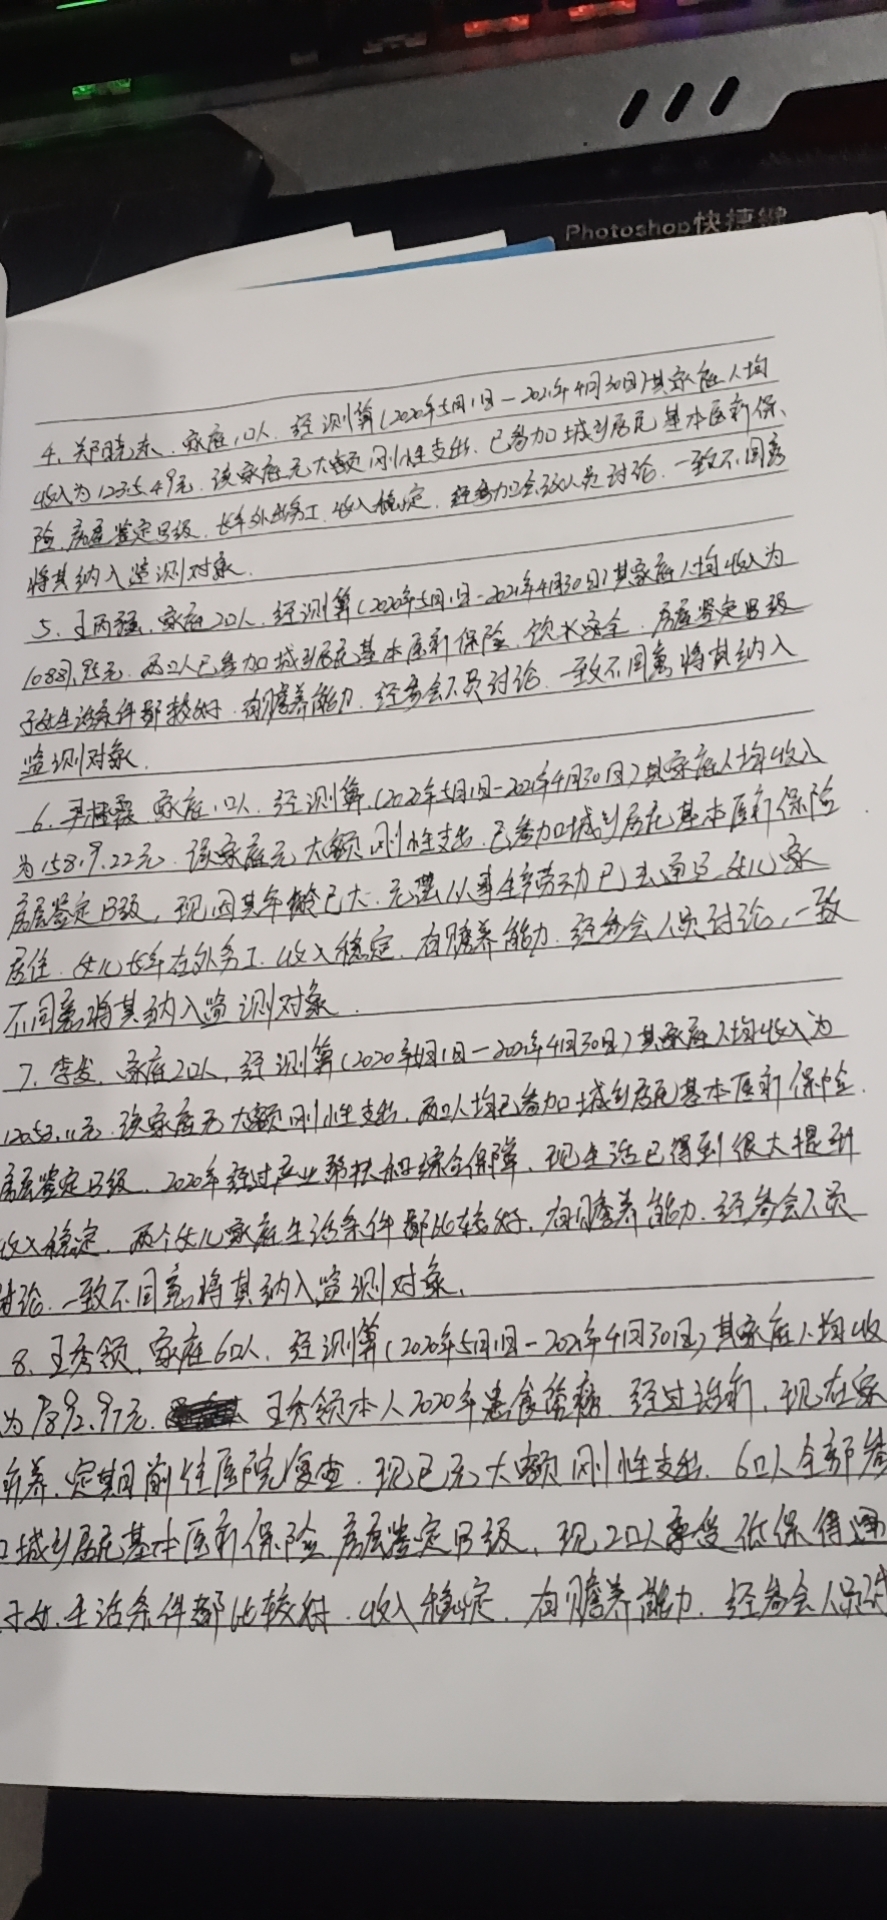 Photoshop快捷键
4、郑晓东，家庭1口人，经测算(2020年5月1日—2021年4月30日)其家庭人均
收入为12355.49元，该家庭无大额刚性支出，已参加城乡居民基本医疗保
险，房屋鉴定B级，长年外出务工，收入稳定，经参加会议人员讨论，一致不同意
将其纳入监测对象。
5、王丙强，家庭2口人，经测算(2020年5月1日-2021年4月30日)其家庭人均收入为
.95元，两口人已参加城乡居民基本医疗保险，饮水安全，房屋鉴定B级
子女生活条件都较好，有赡养能力，经参会人员讨论，一致不同意将其纳入
监测对象。
6、家庭1口人，经测算(2020年5月1日-2021年4月30日)其家庭人均收入
为1589.22元，该家庭无大额刚性支出，已参加城乡居民基本医疗保险
房屋鉴定B级，现因其年龄已大，无法从事生产劳动已去女儿家
居住，女儿长年在外务工，收入稳定，有赡养能力，经参会人员讨论，一致
不同意将其纳入监测对象。
7、李发，家庭2口人，经测算(2020年5月1日—2021年4月30日)其家庭人均收入为
12053.11元，该家庭无大额刚性支出，两口人均已参加城乡居民基本医疗保险，
房屋鉴定B级，2020年经过产业帮扶和综合保障，现生活已得到很大提到
收入稳定，两个女儿家庭生活条件都比较好，有赡养能力，经参会人员
讨论，一致不同意将其纳入监测对象。
8、王秀领，家庭6口人，经测算(2020年5月1日-2021年4月30日)其家庭人均收
为7892.97元，王秀领本人2020年患食管癌，经过治疗，现在家
疗养，定期前往医院复查，现已无大额刚性支出，6口人全部参
加城乡居民基本医疗保险，房屋鉴定B级，现2口人享受低保待遇
子女生活条件都比较好，收入稳定，有赡养能力，经参会人员讨